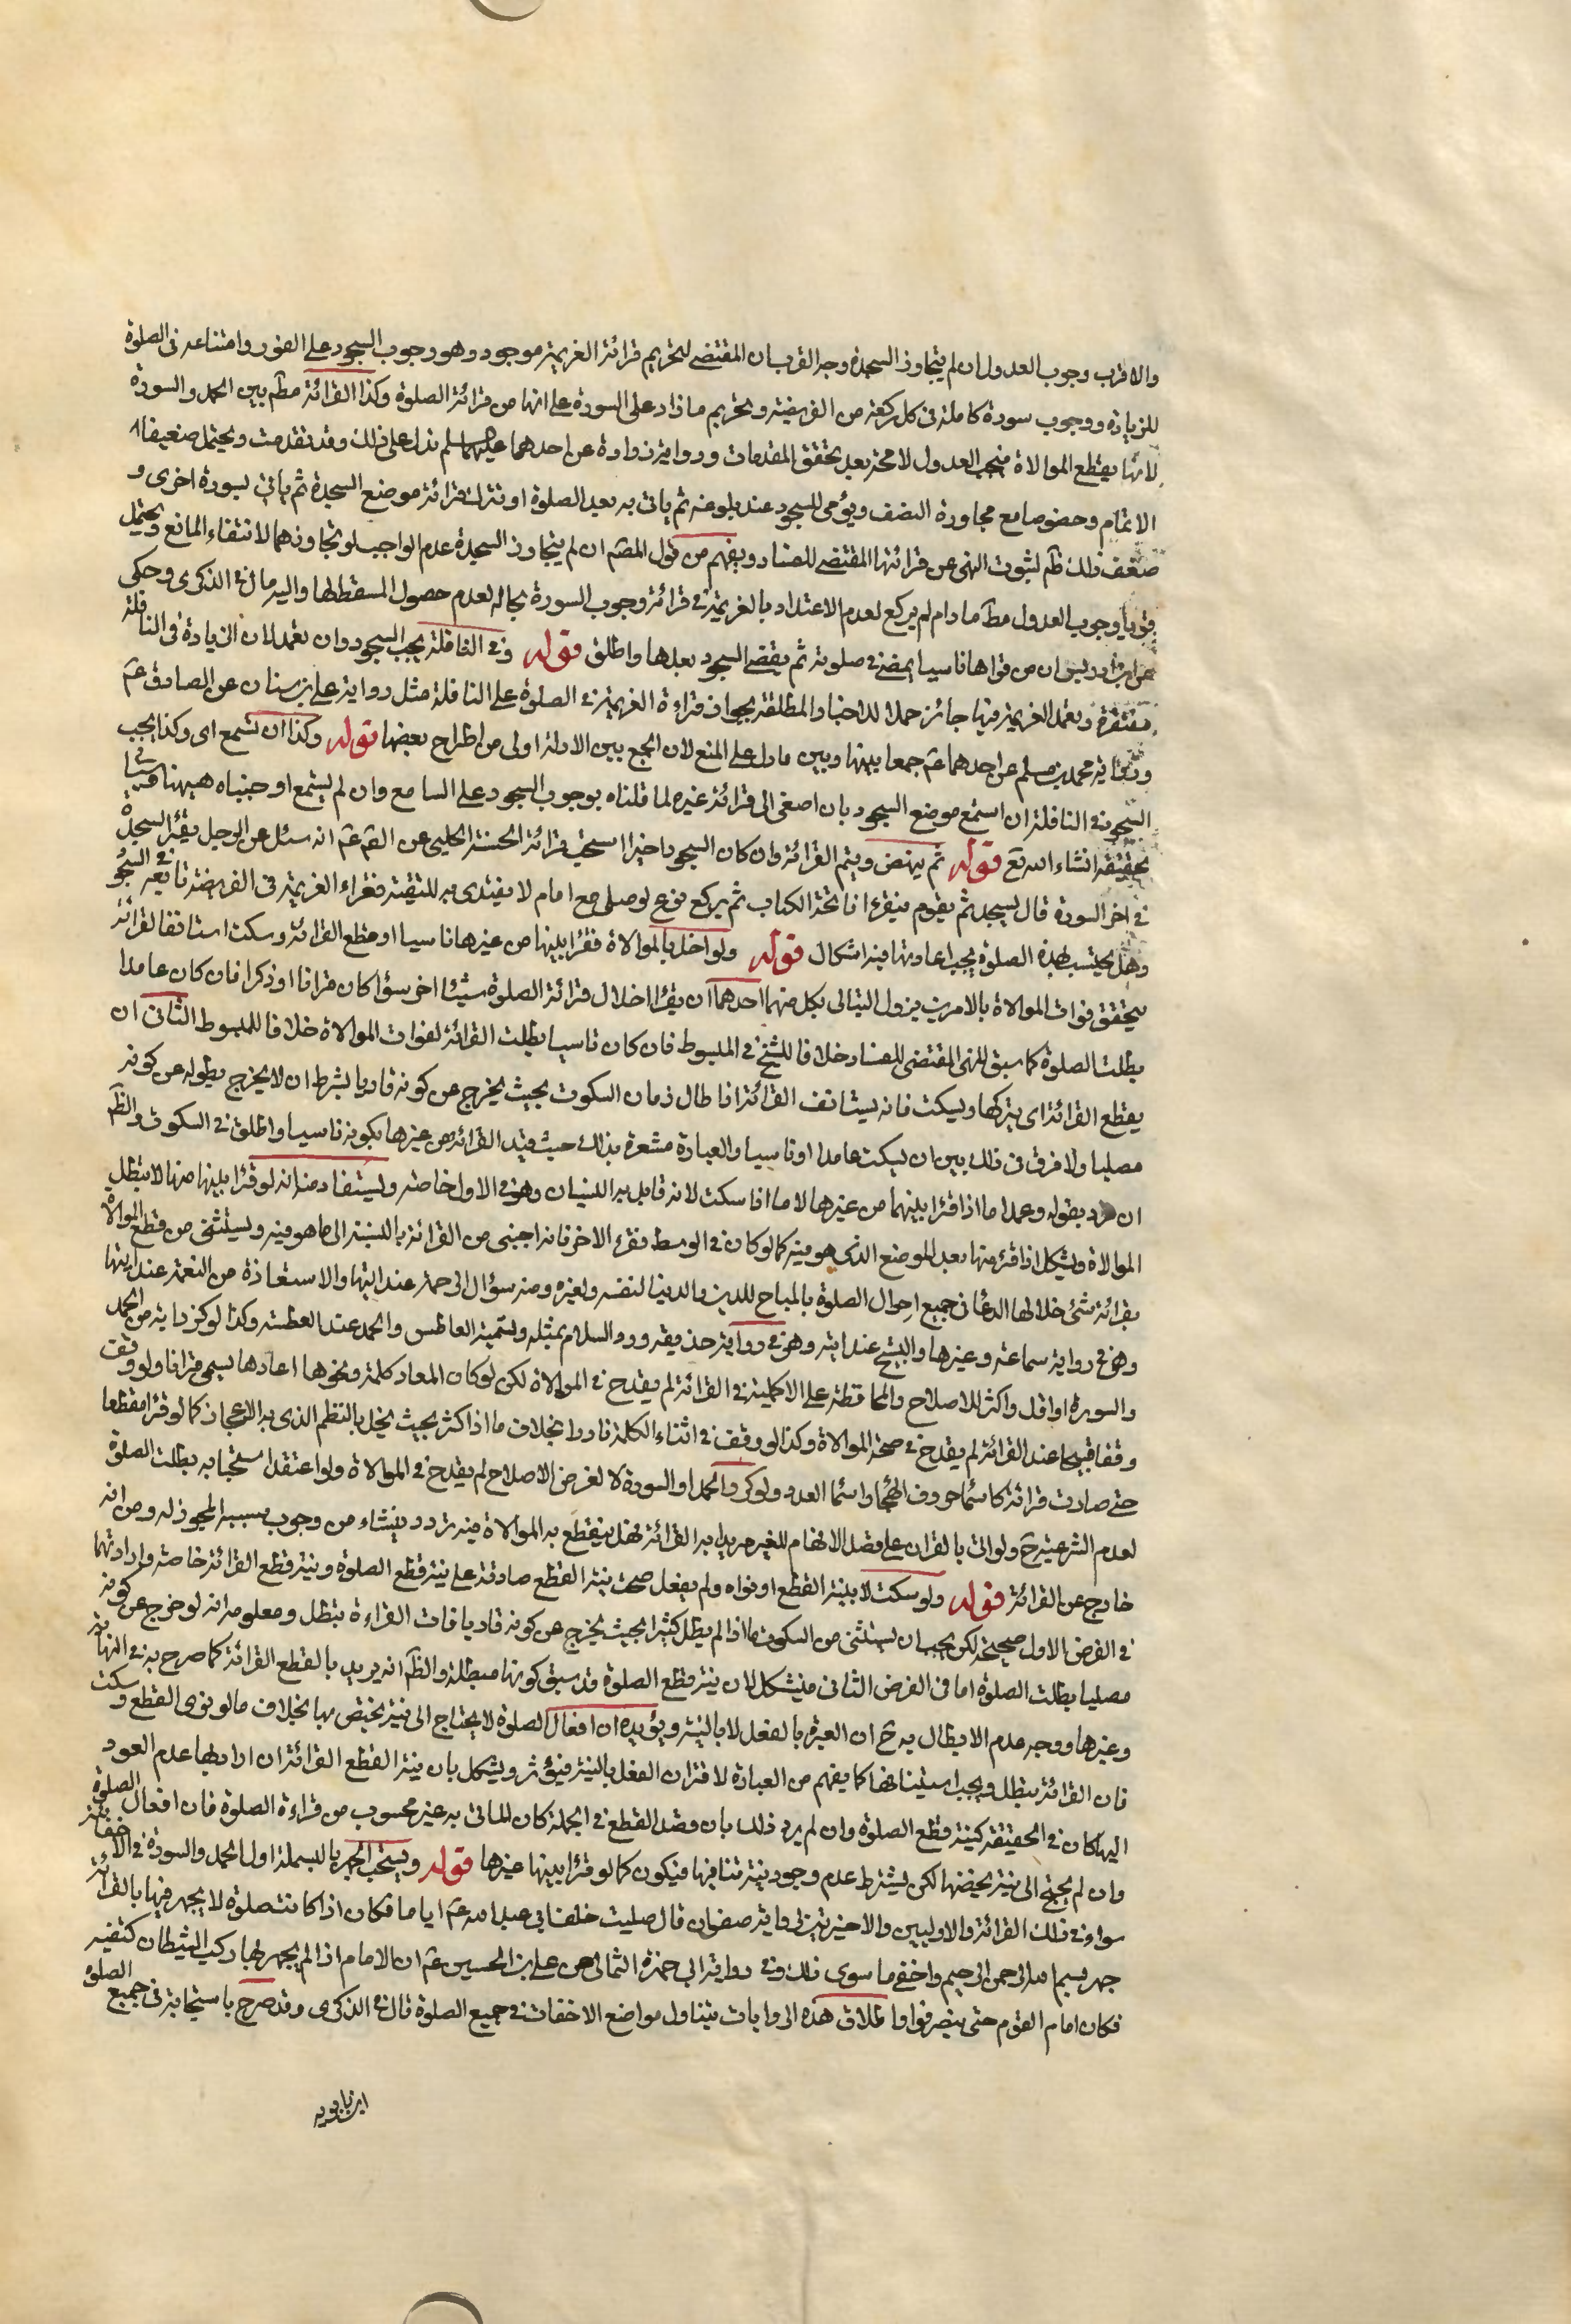 والاقرب وجوب العدول ان لم يتجاوز السجدة وجه القرب ان المقتضى لتحريم قرائة العزيمة موجود وهو وجوب السجود على الفور وامتناعه فى الصلوة
للزيادة ووجوب سورة كاملة فى كل ركعة من الفريضة وتحريم ما زاد على السورة على انها من قرائة الصلوة وكذا القرائة مطم بين الحمد والسورة
لانها يقطع الموالاة فيجب العدول لا محة بعد تحقق المقدمات ورواية زرارة عن احدهما عليهما السلم تدل على ذلك وقد تقدمت ويحتمل ضعيفا
الاتمام وخصوصا مع مجاوزة النصف ويؤمى للسجود عند بلوغه ثم ياتى به بعد الصلوة او تترك قرائة موضع السجدة ثم ياتى بسورة اخرى و
ضعف ذلك ظم لثبوت النهى عن قرائتها المقتضى للفساد ويفهم من قول المصم ان لم يتجاوز السجدة عدم الواجب لو تجاوزهما لانتفاء المانع ويحتمل
قويا وجوب العدول مطم مادام لم يركع لعدم الاعتداد بالعزيمة فى قرائة وجوب السورة بحاله لعدم حصول المسقط لها واليه مال فى الذكرى وحكى
عن ابن ادريس ان من قراها ناسيا يمضى فى صلوته ثم يقضى السجود بعدها واطلق قوله وفى النافلة يجب السجود وان تعمد لان الزيادة فى النافلة
مغتفرة وتعمد العزيمة فيها جائز حملا للاخبار المطلقة بجواز قراءة العزيمة فى الصلوة على النافلة مثل رواية على بن سنان عن الصادق عم
ورواية محمد بن مسلم عن احدهما عم جمعا بينها وبين ما دل على المنع لان الجمع بين الادلة اولى من اطراح بعضها قوله وكذا ان تستمع اى وكذا يجب
السجود فى النافلة ان استمع موضع السجود بان اصغى الى قرائة غيره لما قلناه بوجوب السجود على السامع وان لم يستمع اوجبناه هيهنا وسيأتى
تحقيقه انشاء الله تع قوله ثم ينهض ويتم القرائة وان كان السجود اخيرا استحب قرائة الحسنة الحلبى عن القم عم انه سئل عن الرجل يقرء السجدة
فى اخر السورة قال يسجد ثم يقوم فيقرء فاتحة الكتاب ثم يركع فرع لو صلى مع امام لا يقتدى به للتقية فقراء العزيمة فى الفريضة تابعه فى السجود
وهل يحتسب بهذه الصلوة يجب اعادتها فيه اشكال قوله ولو اخل بالموالاة فقرا بينها من غيرها ناسيا او قطع القرائة وسكت استانف القرائة
يتحقق فوات الموالاة بالامرين يزول التتالى بكل منهما احدهما ان يقرا خلال قرائة الصلوة شيئا اخر سؤا كان قرانا او ذكرا فان كان عامدا
بطلت الصلوة كما سبق للنهى المقتضى للفساد خلافا للشيخ فى المبسوط فان كان ناسيا بطلت القرائة لفوات الموالاة خلافا للمبسوط الثانى ان
يقطع القرائة اى يتركها ويسكت فانه يستانف القرائة اذا طال زمان السكوت بحيث يخرج عن كونه قاريا بشرط ان لا يخرج بطوله عن كونه
مصليا ولا فرق فى ذلك بين ان يسكت عامدا او ناسيا والعبارة مشعرة بذلك حيث قيد القرائة من غيرها بكونه ناسيا واطلق فى السكوت والظم
ان مراد بقوله وعمدا ما اذا قرا بينهما من غيرها لا ما اذا سكت لانه قابل به النسيان وهو فى الاول خاصه ويستفاد منه انه لو قرا بينها منها لا يبطل
الموالاة ويشكل اذا قرء منها بعد الموضع الذى هو فيه كما لو كان فى الوسط فقرء الاخر فانه اجنبى من القرائة بالنسبة الى ما هو فيه ويستثنى من قطع الموالاة
بقرائة شئ خلالها الدعا فى جميع احوال الصلوة بالمباح للدين والدنيا لنفسه ولغيره ومنه سؤال الرحمة عند ايتها والاستعاذة من النقمة عند ايتها
وهو فى رواية سماعه وغيرها والتسبيح عند ايته وهو فى رواية حذيفه ورد السلام بمثله وتسمية العاطس والحمد عند العطسه وكذا لو كرر اية من الحمد
والسورة او اقل او اكثر للاصلاح والمحافظة على الاكملية فى القرائة لم يقدح فى الموالاة لكن لو كان المعاد كلمة ونحوها اعادها بسمى قرانا ولو وقف
وقفا قبيحا عند القرائة لم يقدح فى صحة الموالاة وكذا لو وقف فى اثناء الكلمة نادرا بخلاف ما اذا كثر بحيث يخل بالنظم الذى به الاعجاز كما لو قرا مقطعا
حتى صارت قرائة كاسما حروف الهجا واسما العدد ولو كرر الحمد او السورة لا لغرض الاصلاح لم يقدح فى الموالاة ولو اعتقد استحبابه بطلت الصلوة
لعدم الشرعية ح ولو اتى بالقران على قصد الافهام للغير مريدا به القرائة فهل ينقطع به الموالاة فيه تردد ينشاء من وجوب بسببه المجوز له ومن انه
خارج عن القرائة قوله ولو سكت لا بنية القطع او نواه ولم يفعل صحت نية القطع صادقة على نية قطع الصلوة ونية قطع القرائة خاصه وارادتهما
فى الفرض الاول صحيحة لكن يجب ان يستثنى من السكوت ما اذا لم يطل كثيرا بحيث يخرج عن كونه قاريا فات القراءة بتطل ومعلوم انه لو خرج عن كونه
مصليا بطلت الصلوة اما فى الفرض الثانى فيشكل لان نية قطع الصلوة قد سبق كونها مبطلة والظم انه يريد بالقطع القرائة كما صرح به فى النهاية
وغيرها ووجه عدم الابطال به ح ان العبرة بالفعل لا بالنية ويؤيده ان افعال الصلوة لا يحتاج الى نية يختص بها بخلاف ما لو نوى القطع وسكت
فان القرائة يبطل ويجب استينافها كما يفهم من العبارة لاقتران الفعل بالنية فيؤثر ويشكل بان نية القطع القرائة ان اراد بها عدم العود
اليها كان فى الحقيقة كنية قطع الصلوة وان لم يرد ذلك بان قصد القطع فى الجملة كان الماتى به غير محسوب من قراءة الصلوة فان افعال الصلوة
وان لم يحتج الى نية يخصها لكن يشترط عدم وجود نية تنافيها فيكون كما لو قرا بينها غيرها قوله ويستحب الجهر بالبسملة اول الحمد والسورة فى الاخفاتية
سواء فى ذلك القرائة والاوليين والاخيرتين لرواية صفوان قال صليت خلف ابى عبد الله عم اياما فكان اذا كانت صلوة لا يجهر فيها بالقرائة
جهر ببسم الله الرحمن الرحيم واخفى ما سوى ذلك وفى رواية ابى حمزة الثمالى عن على بن الحسين عم ان الامام اذا لم يجهر بها ركب الشيطان كتفيه
فكان امام القوم حتى ينصرفوا واطلاق هذه الروايات يتناول مواضع الاخفات فى جميع الصلوة قال فى الذكرى وقد صرح باستحبابه فى جميع الصلوة
ابن بابويه